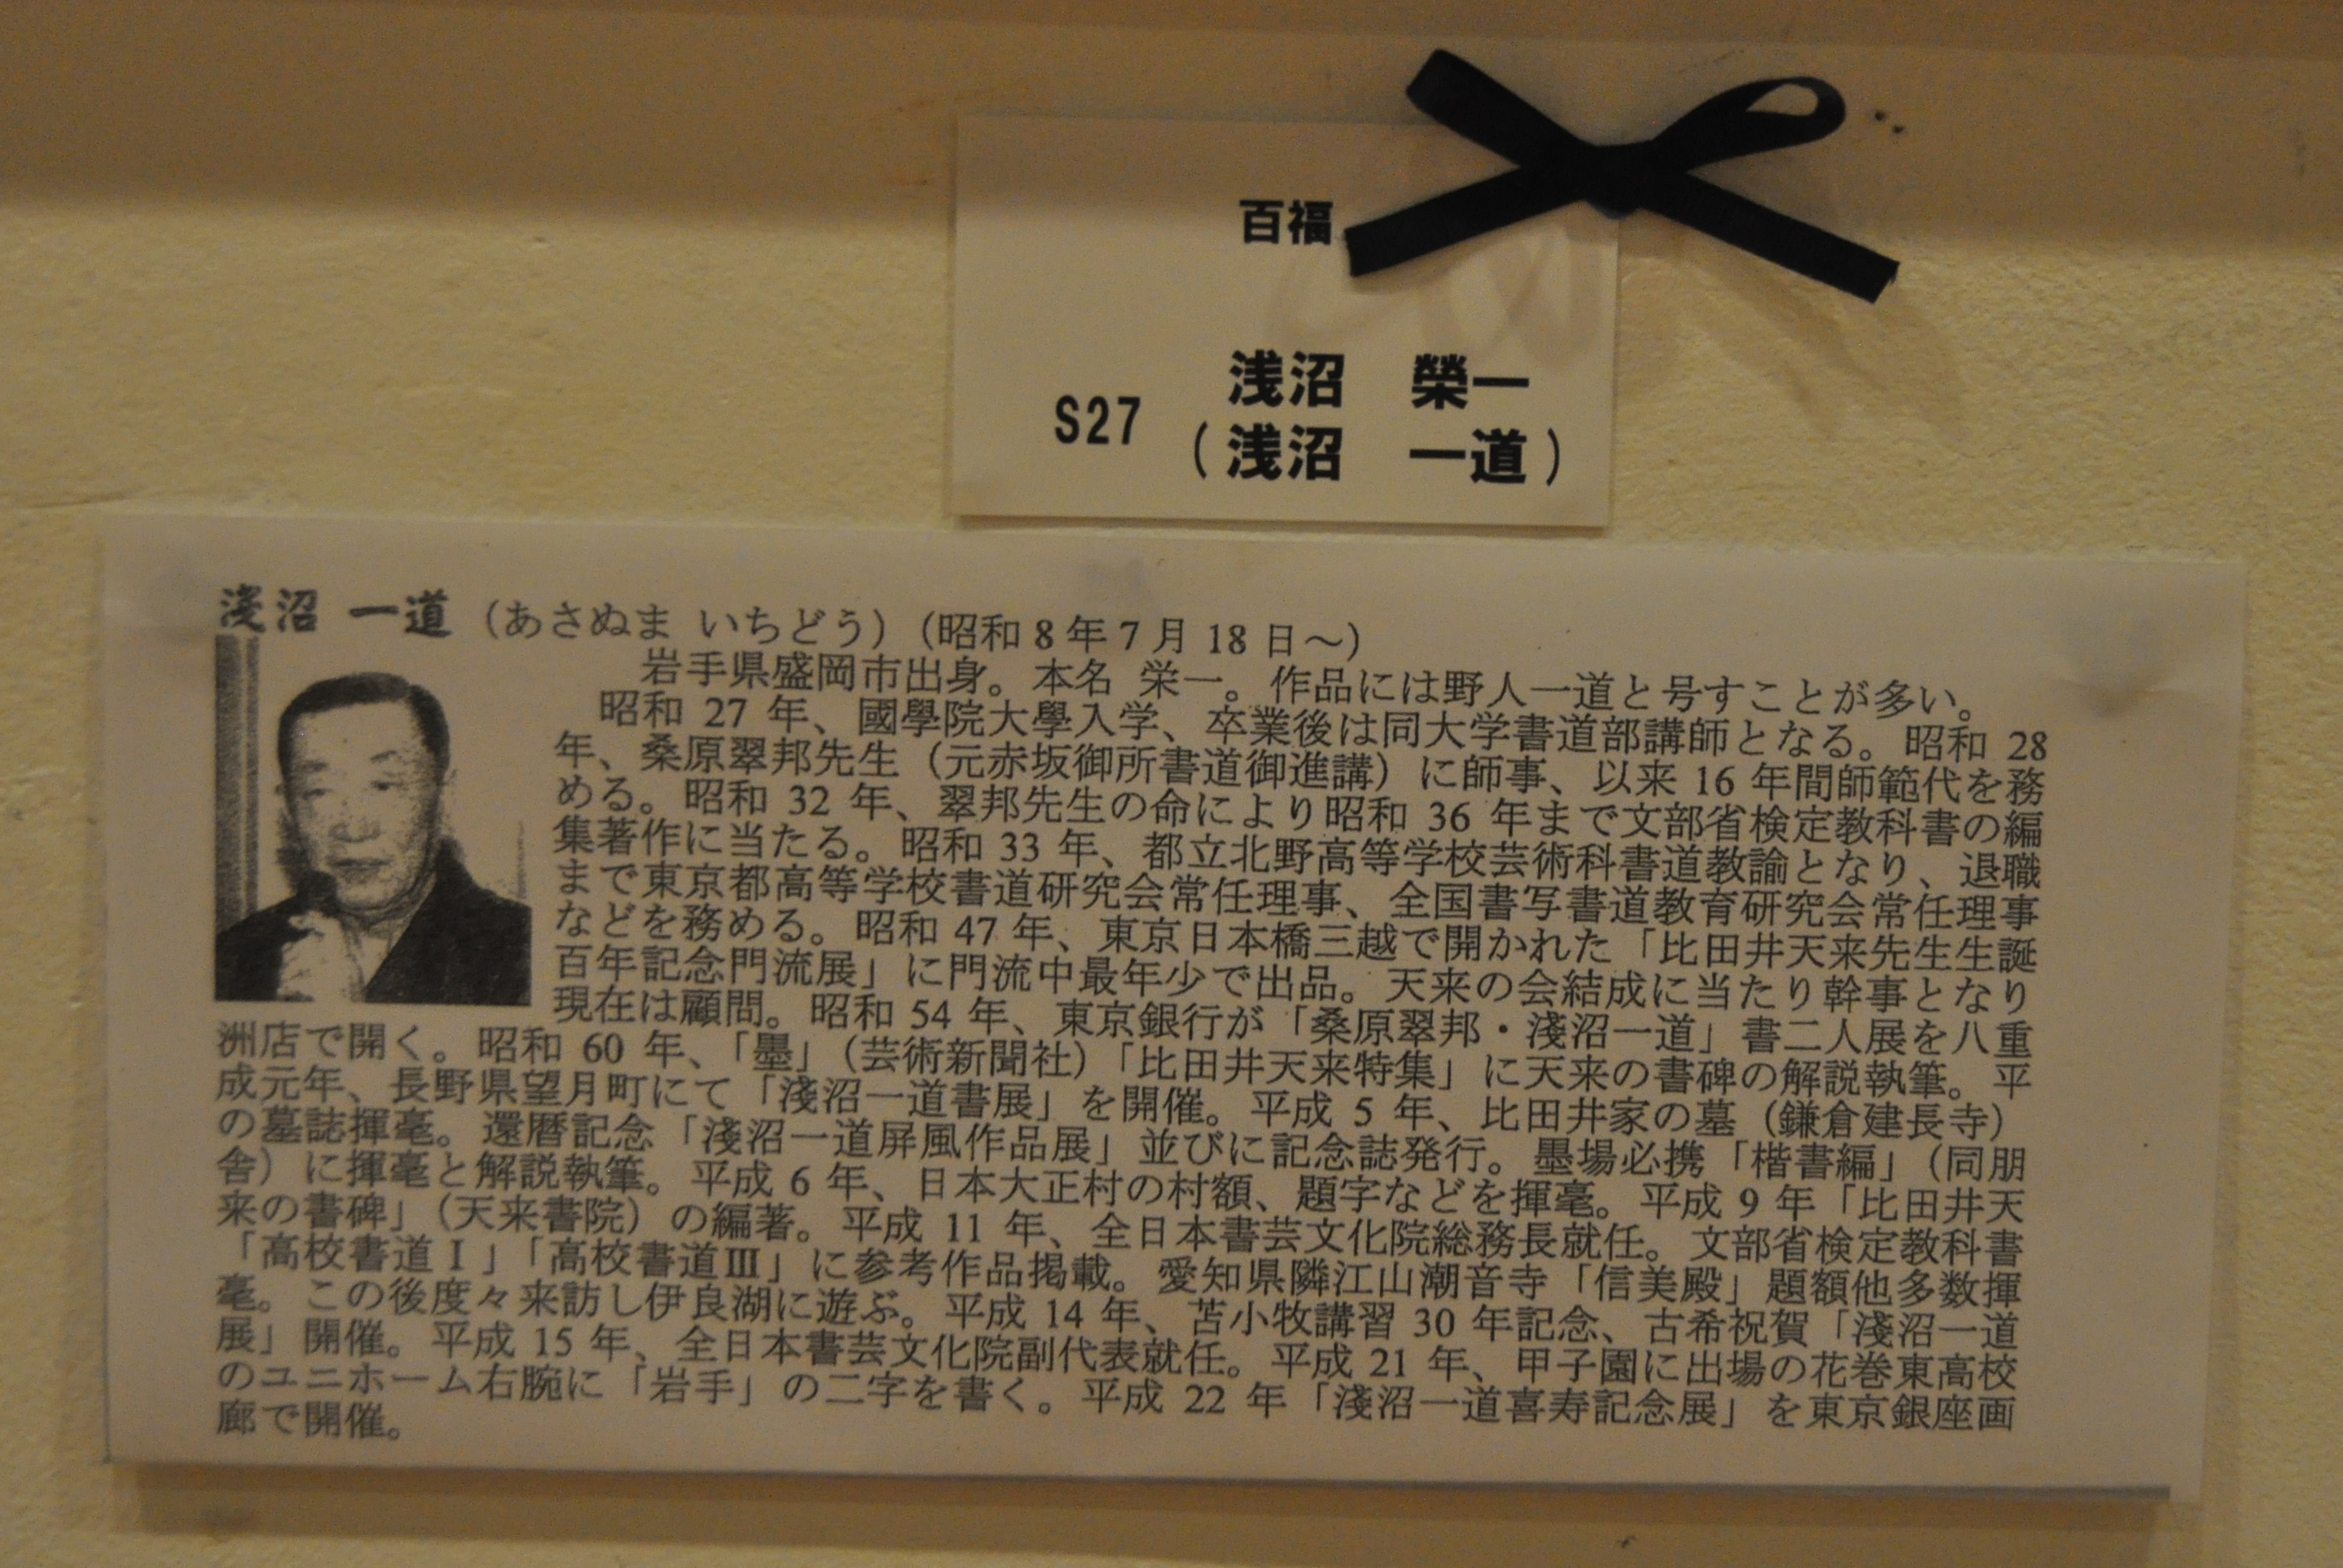 百福
浅沼 榮一
S27
(浅沼 一道)
淺沼 一道（あさぬま いちどう）（昭和8年7月18日～）
岩手県盛岡市出身。本名 栄一。作品には野人一道と号すことが多い。
昭和 27 年、國學院大學入学、卒業後は同大学書道部講師となる。昭和 28
年、桑原翠邦先生（元赤坂御所書道御進講）に師事、以来 16 年間師範代を務
める。昭和 32 年、翠邦先生の命により昭和 36 年まで文部省検定教科書の編
集著作に当たる。昭和 33 年、都立北野高等学校芸術科書道教諭となり、退職
まで東京都高等学校書道研究会常任理事、全国書写書道教育研究会常任理事
などを務める。昭和 47 年、東京日本橋三越で開かれた「比田井天来先生生誕
百年記念門流展」に門流中最年少で出品。天来の会結成に当たり幹事となり
現在は顧問。昭和 54 年、東京銀行が「桑原翠邦・淺沼一道」書二人展を八重
洲店で開く。昭和 60 年、「墨」（芸術新聞社）「比田井天来特集」に天来の書碑の解説執筆。平
成元年、長野県望月町にて「淺沼一道書展」を開催。平成 5 年、比田井家の墓（鎌倉建長寺）
の墓誌揮毫。還暦記念「淺沼一道屏風作品展」並びに記念誌発行。墨場必携「楷書編」（同朋
舎）に揮毫と解説執筆。平成 6 年、日本大正村の村額、題字などを揮毫。平成 9 年「比田井天
来の書碑」（天来書院）の編著。平成 11 年、全日本書芸文化院総務長就任。文部省検定教科書
「高校書道Ⅰ」「高校書道Ⅲ」に参考作品掲載。愛知県隣江山潮音寺「信美殿」題額他多数揮
毫。この後度々来訪し伊良湖に遊ぶ。平成 14 年、苫小牧講習 30 年記念、古希祝賀「淺沼一道
展」開催。平成 15 年、全日本書芸文化院副代表就任。平成 21 年、甲子園に出場の花巻東高校
のユニホーム右腕に「岩手」の二字を書く。平成 22 年「淺沼一道喜寿記念展」を東京銀座画
廊で開催。